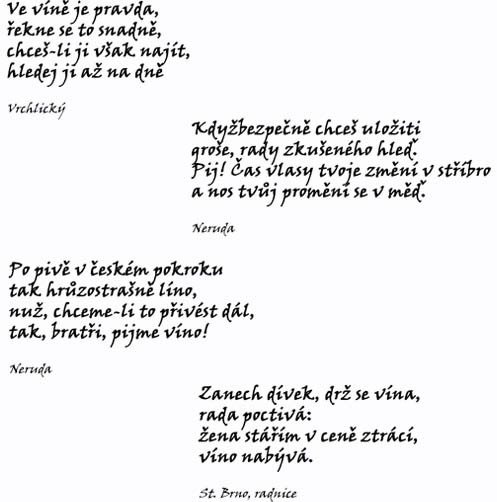 Ve víně je pravda,
řekne se to snadně,
chceš-li ji však najít,
hledej ji až na dně
Vrchlický
Kdyžbezpečně chceš uložiti
groše, rady zkušeného hleď.
Pij! Čas vlasy tvoje změní v stříbro
a nos tvůj promění se v měď.
Neruda
Po pivě v českém pokroku
tak hrůzostrašně líno,
nuž, chceme-li to přivést dál,
tak, bratři, pijme víno!
Neruda
Zanech dívek, drž se vína,
rada poctivá:
žena stářím v ceně ztrácí,
víno nabývá.
St. Brno, radnice